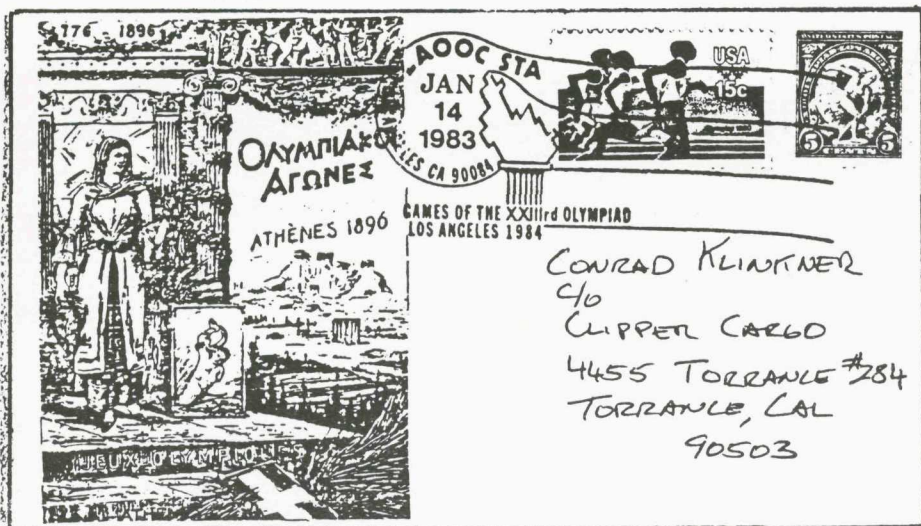 776 - 1896
ΟΛΥΜΠΙΑΚΟΙ
ΑΓΩΝΕΣ
ATHÈNES 1896
JEUX OLYMPIQUES
LAOOC STA
JAN
14
1983
LES CA 90084
GAMES OF THE XXIIIrd OLYMPIAD
LOS ANGELES 1984
USA
15c
5 5
CENTS
CONRAD KLINKNER
c/o
CLIPPER CARGO
4455 TORRANCE #284
TORRANCE, CAL
90503